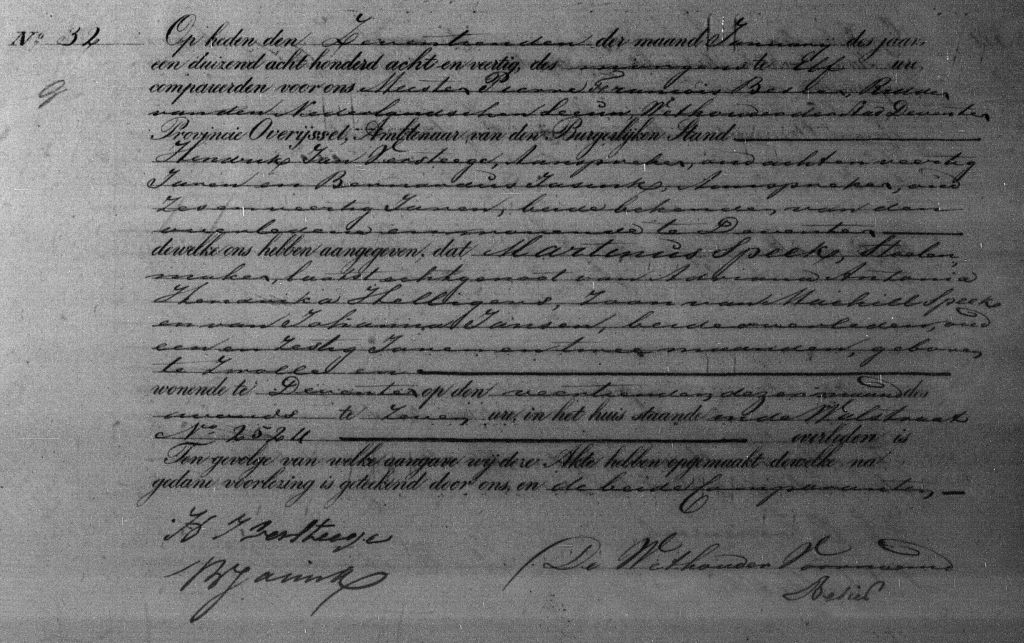 No 32
Op heden den Zeventienden der maand Januarij des jaars
een duizend acht honderd acht en veertig, des morgens te Elf ure
compareerden voor ons Meester Pierre François Besier, Ridder
van den Nederlandschen Leeuw, Wethouder der Stad Deventer
Provincie Overijssel, Ambtenaar van den Burgerlijken Stand
Hendrik Jan Versteege, Aanspreker, oud acht en veertig
Jaren en Bernardus Jasink, Aanspreker, oud
Zes en veertig Jaren, beide bekenden van den
overledene en wonende te Deventer
dewelke ons hebben aangegeven, dat Martinus Speeke, Stoelen
maker, laatst echtgenoot van Adriana Antonia
Hendrika Hellegers, Zoon van Machiel Speek
en van Johanna Jansen, beide overleden, oud
een en Zestig Jaren en twee maanden, geboren
te Zwolle en
wonende te Deventer op den veertienden dezer maand des
avonds te Zeven ure, in het huis staande in de Walstraat
No 252
overleden is
Ten gevolge van welke aangave wij deze Akte hebben opgemaakt dewelke na
gedane voorlezing is geteekend door ons, en de beide Comparanten,
H J Versteege
B Jasink
De Wethouder Voornoemd
Besier